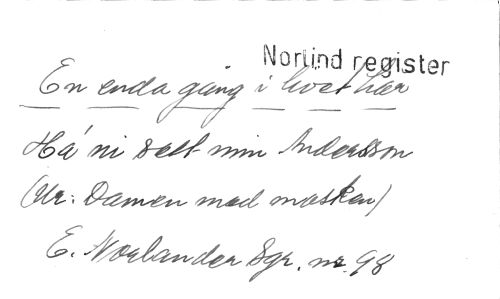 Norlind register
En enda gång i livet här
Há ni sett min Andersson
(Ur: Damen med masken)
E. Norlander Sgr. nr. 98